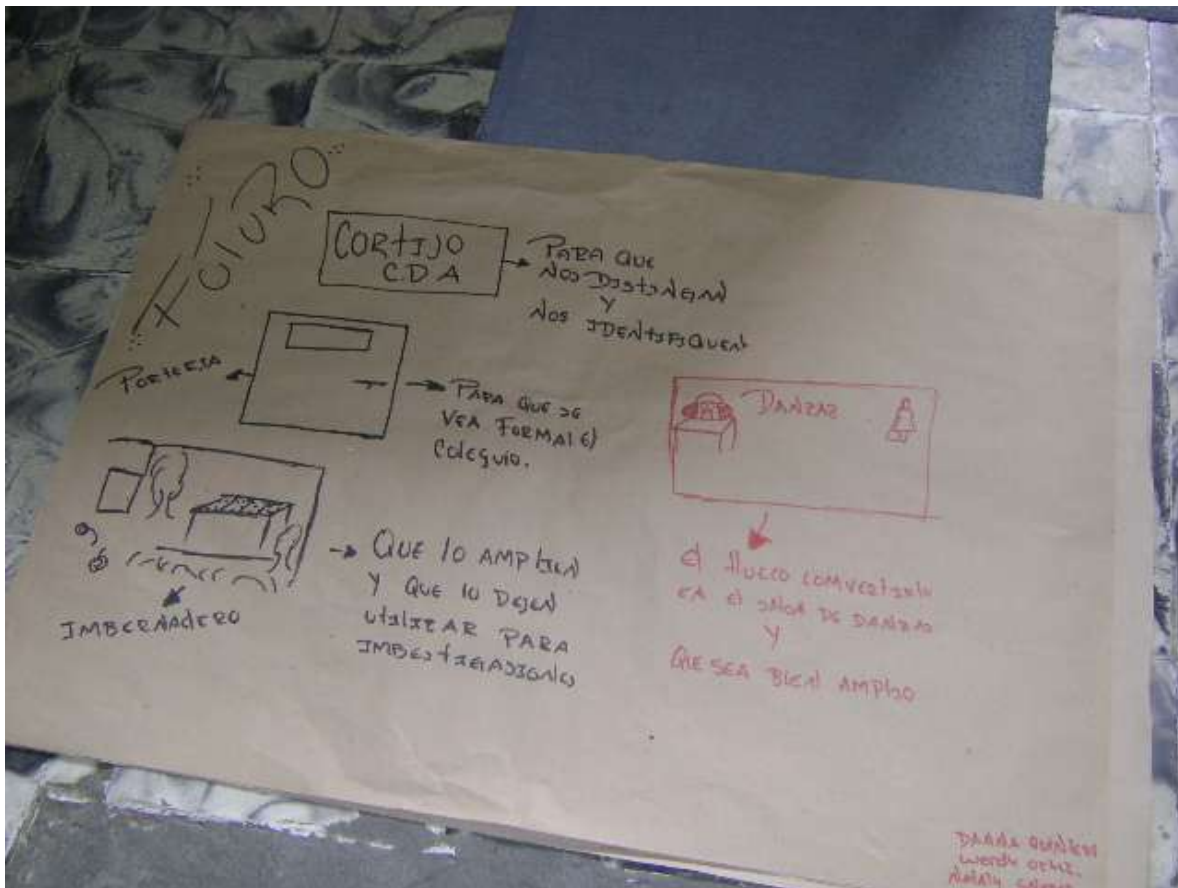 FUTURO
CORTIJO
C.D.A
PARA QUE
NOS DISTINGAN
Y
NOS IDENTIFIQUEN
PORTERIA
PARA QUE SE
VEA FORMAL El
COLEGUIO.
QUE lO AMPLIEN
Y QUE lO DEJEN
UTILIZAR PARA
IMBESTIGASIONES
IMBERNADERO
DANZAS
El HUECO COMVERTIRLO
EN El SALON DE DANZAS
Y
QUE SEA BIEN AMPLIO
Wendy ORTIZ.